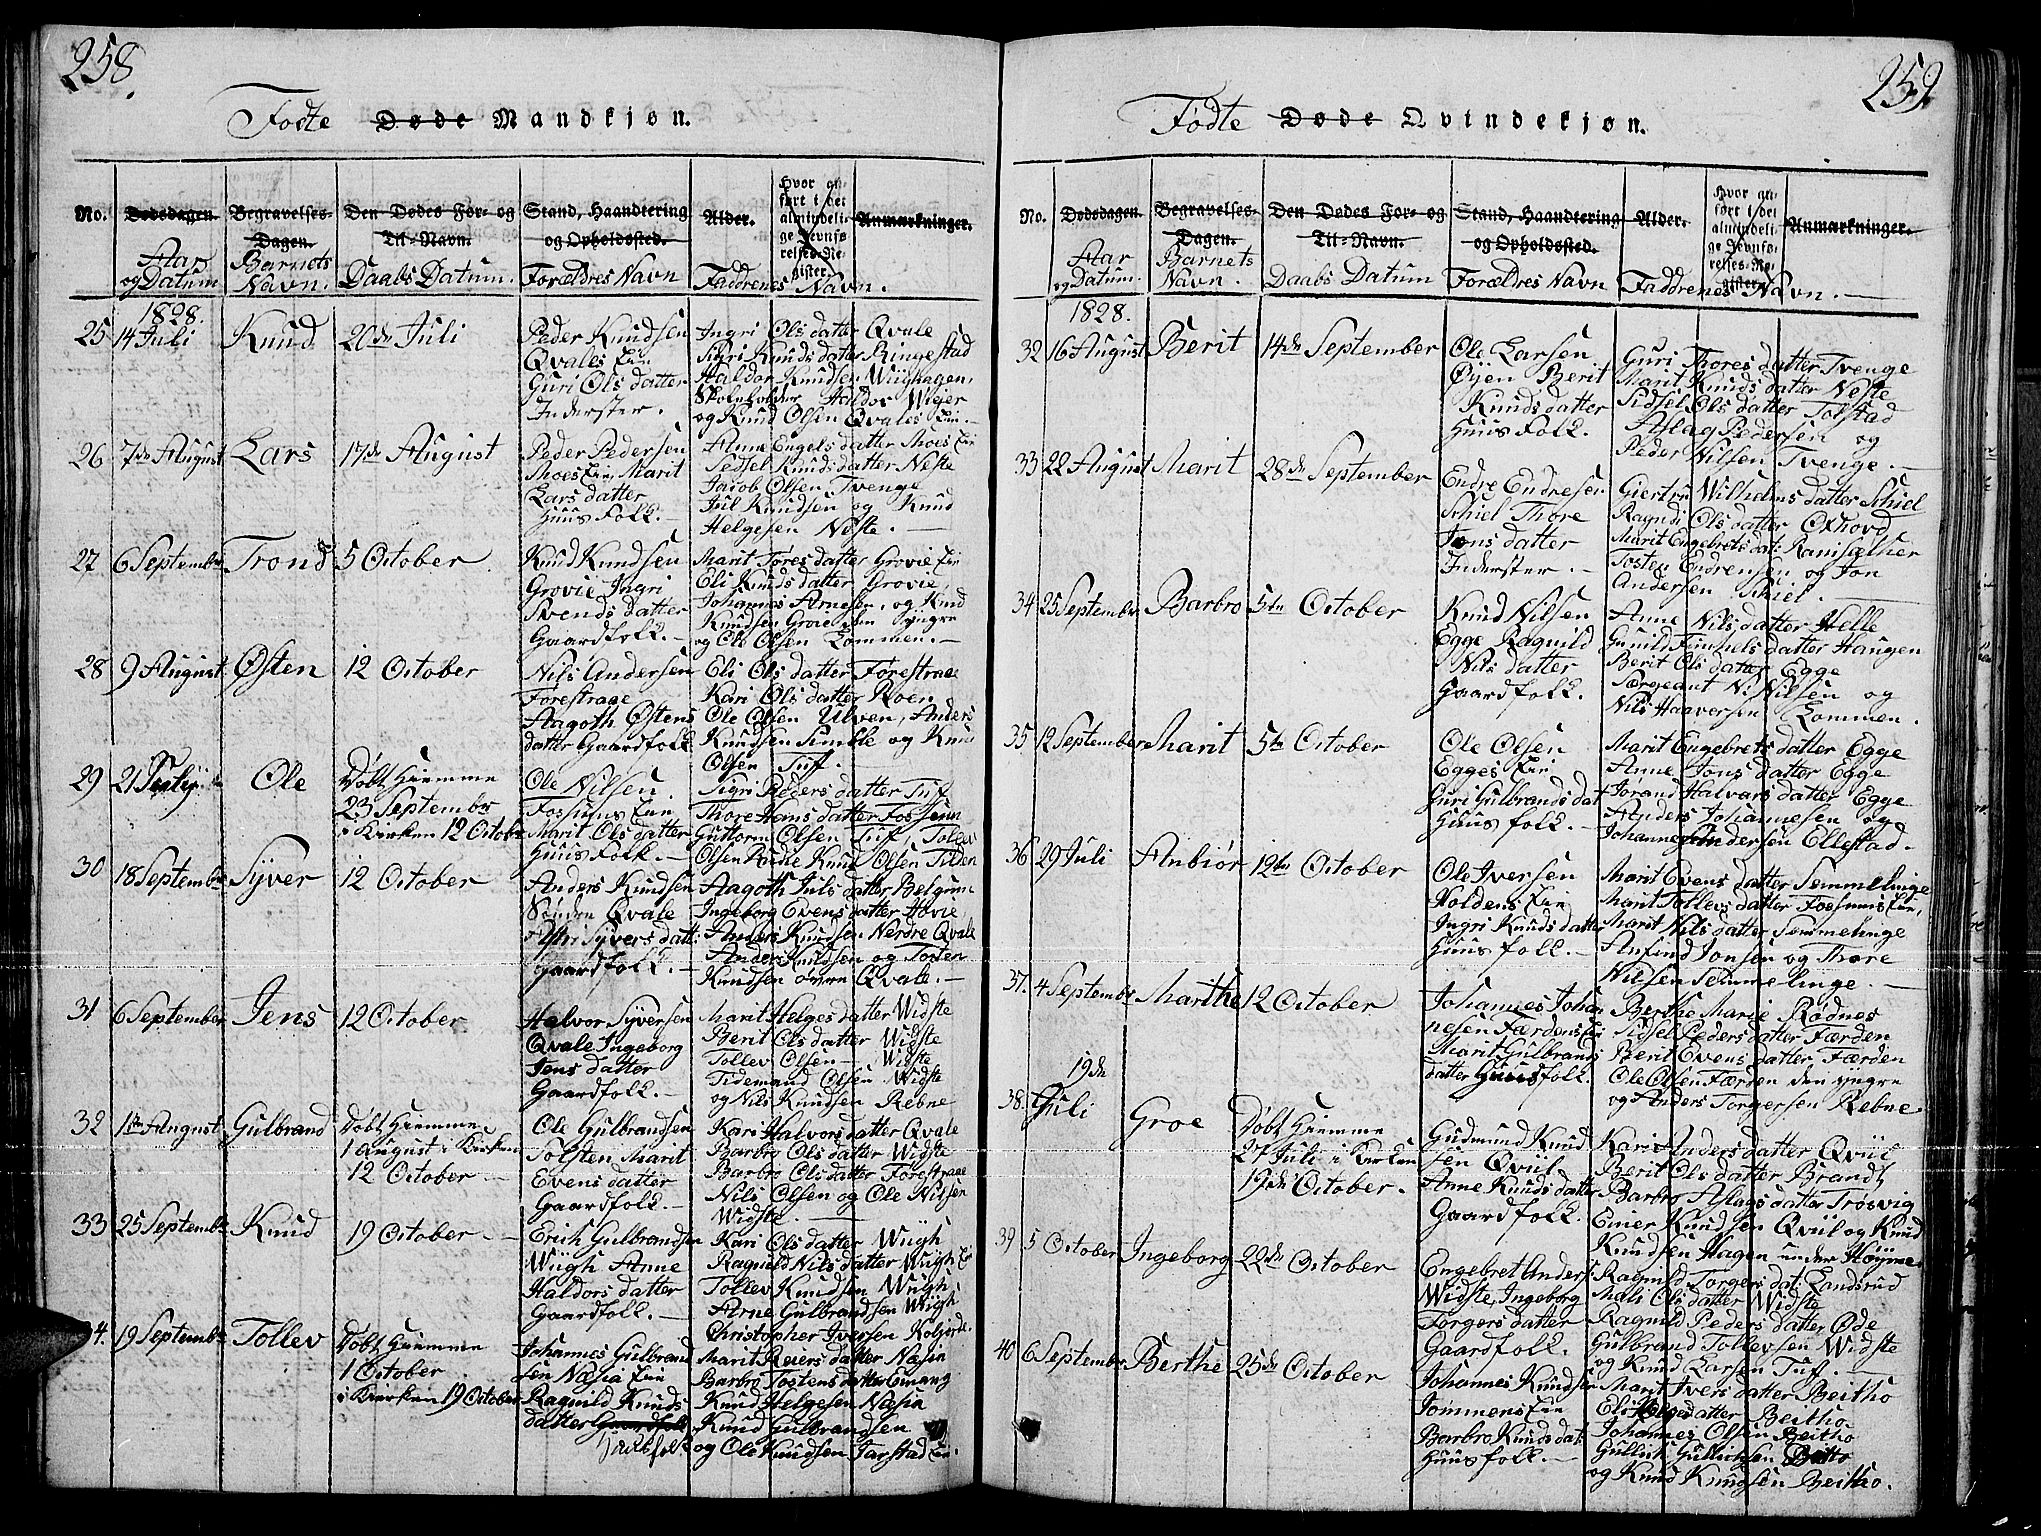 258.
Fødte Døde Mandkjøn.
No. Dødsdagen. Begravelses-Dagen. Den Dødes For- og Til-Navn. Stand, Haandtering og Opholdssted. Alder. Hvor anført i det almindelige Jevnførelses-Register. Anmærkninger.
Aar og Datum Barnets Navn. Daabs Datum. Forældres Navn Faddrenes Navn.
1828.
25 14 Juli Knud 20de Juli Peder Knudsen Ingri Ols datter Qvale
Qvales Eie Sigri Knuds datter Ringestad
Guri Ols datter Haldor Knudsen Wiighagen,
Inderster. Skoleholder Haldor Wiger
og Knud Olsen Qvales Eie.
26 7de August Lars 17de August Peder Pedersen Anne Engels datter Moes Eie
Moes Eie, Marit Sidsel Knuds datter Neste
Lars datter Jacob Olsen Tvenge
Huus Folk. Jul Knudsen og Knud
Helgesen Neste.
27 6 September Trond 5 October Knud Knudsen Marit Tores datter Grovie Eie
Grovie Ingri Eli Knuds datter Grovie,
Svends datter Johannes Arnesen, og Knud
Gaardfolk. Knudsen Grovie den yngre
og Ole Olsen Lommen.
28 9 August Østen 12 October Nils Andersen Eli Ols datter Førestrae
Førestrage Kari Ols datter Roen
Aagoth Østens Ole Olsen Ulven, Anders
datter Gaardfolk Knudsen Simble og Knud
Olsen Tuf.
29 21 Ole Døbt Hiemme Ole Nilsen Sigri Peders datter Tuf
23 September Fossums Eie Thore Hans datter Fossum
i Kirken 12 Octobr Marit Ols datter Guttorm Olsen Tuf, Tollev
Huus Folk. Olsen Knud Olsen Tilden
30 18 September Syver 12 October Anders Knudsen Aagoth Juls datter Belgum
Søndre Qvale Ingeborg Evens datter Hovie
Astri Syvers datt: Anders Knudsen Nerdre Qvale
Gaardfolk. Anders Knudsen og Tosten
Knudsen øvre Qvale.
31 6 September Jens 12 October Halvor Syversen Marit Helges datter Widste
Qvale Ingeborg Berit Ols datter Widste
Jens datter Tollev Olsen Widste
Gaardfolk. Tidemand Olsen Widste
og Nils Knudsen Rebne
32 1ste August Gulbrand Døbt Hiemme Ole Gulbrandsen Kari Halvors datter Qvale
1 August i Kirken Tolsten Marit Barbro Ols datter Widste
12 October Evens datter Barbro Ols datter Forestraae
Gaardfolk. Nils Olsen og Ole Nilsen
Widste.
33 25 Septembr Knud 19 October Erich Gulbrandsen Kari Ols datter Wiigh
Wiigh Anne Ragnild Nils datter Wiigh Eie
Haldors datter Tollev Knudsen Wiigh
Gaardfolk. Arne Gulbrandsen Wigh
Christopher Iversen Koljorde.
34. 19 Septembr Tollev Døbt Hiemme Johannes Gulbrand Marit Reiers datter Næsia
1 October sen Næsia Eie Barbro Tostens datter Omang
i Kirken 19 October Ragnild Knuds Knud Helgesen Næsia
datter Gaardfolk Knud Gulbrandsen
Huusfolk og Ole Knudsen Tarstad Eie.
259
Fødte Døde Qvindekjøn.
No. Dødsdagen. Begravelses-Dagen. Den Dødes For- og Til-Navn. Stand, Haandtering og Opholdssted. Alder. Hvor anført i det almindelige Jevnførelses-Register. Anmærkninger.
Aar og Datum. Barnets Navn. Daabs Datum Forældres Navn Faddrenes Navn.
1828.
32 16 August Berit 14de September Ole Larsen Guri Thores datter Tvenge
Øijen Berit Marit Knuds datter Neste
Knuds datter Sidsel Ols datter Tolstad
Huus Folk. Aslag Pedersen og
Peder Nilsen Tvenge.
33 22 August Marit 28de September Endre Endresen Giertru Wilhelms datter Schiel
Schiel Thore Ragndi Ols datter Oxhovd
Jons datter Marit Engebrets dat: Ranisæther
Inderster. Tosten Endrensen og Jon
Andersen Schiel.
34 25 September Barbro 5te October Knud Nilsen Anne Nils datter Helle
Egge Ragnild Gunild Himmels datter Haugen
Nils datter Berit Ols datter Egge
Gaardfolk. Særgeant N: Nilsen og
Nils Haaversen Lommen.
35 12 September Marit 5te October Ole Olsen Marit Engebrets datter Egge
Egges Eie Anne Jons datter Egge
Guri Gulbrands dat Jørand Halvars datter Egge
Huusfolk. Anders Johannesen og
Johannes Andersen Ellestad.
36 29 Juli Anbiør 12te October Ole Iversen Marit Evens datter Semmelinge
Holdens Eie Marit Tollevs datter Fossums Eie,
Ingri Knuds datter Marit Nils datter Semmelinge
Huusfolk. Anfind Jonsen og Thore
Nilsen Semmelinge.
37. 4 Septembr Marthe 12 October Johannes Johan Berthe Marie Rødnes
nesen Færdens Eie Sidsel Peders datter Færden
Marit Gulbrands Berit Evens datter Færden
datter Huusfolk. Ole Olsen Færden den yngre
og Anders Torgersen Rebne
38. 19de Juli Groe Døbt Hiemme Gudmund Knud Kari Anders datter Qviil
27 Juli i Kirken sen Qviil Berit Ols datter Brandt
19de October. Anne Knuds datter Barbro Aslags datter Trøsvig
Gaardfolk. Einer Knudsen Qviil og Knud
Knudsen Hagen under Høyme
39 5 October Ingeborg 22de October Engebret Anders: Ragnild Torgers dat: Landsrud
Widste, Ingeborg Mali Ols datter Widste
Torgers datter Ragnild Peders datter Øde
Gaardfolk. Gulbrand Tollevsen Widste
og Knud Larsen Tuf.
40 6 September Berthe 25de October Johannes Knudsen Marit Ivers datter Beitho
Jommens Eie Eli Helges datter Beitho
Barbro Knuds dat: Johannes Olsen Beitho
Huusfolk. Gullik Gulliksen Beitto
og Knud Knudsen Beitho.